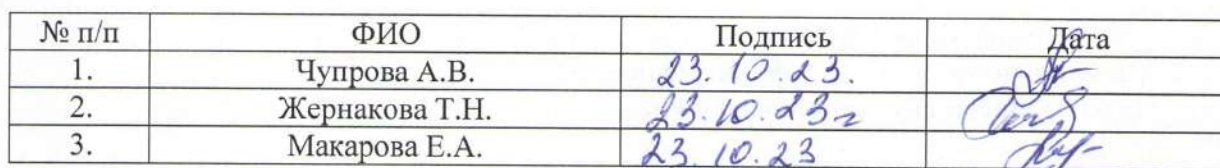 № п/п ФИО Подпись Дата
1. Чупрова А.В. 23.10.23.
2. Жернакова Т.Н. 23.10.23г
3. Макарова Е.А. 23.10.23